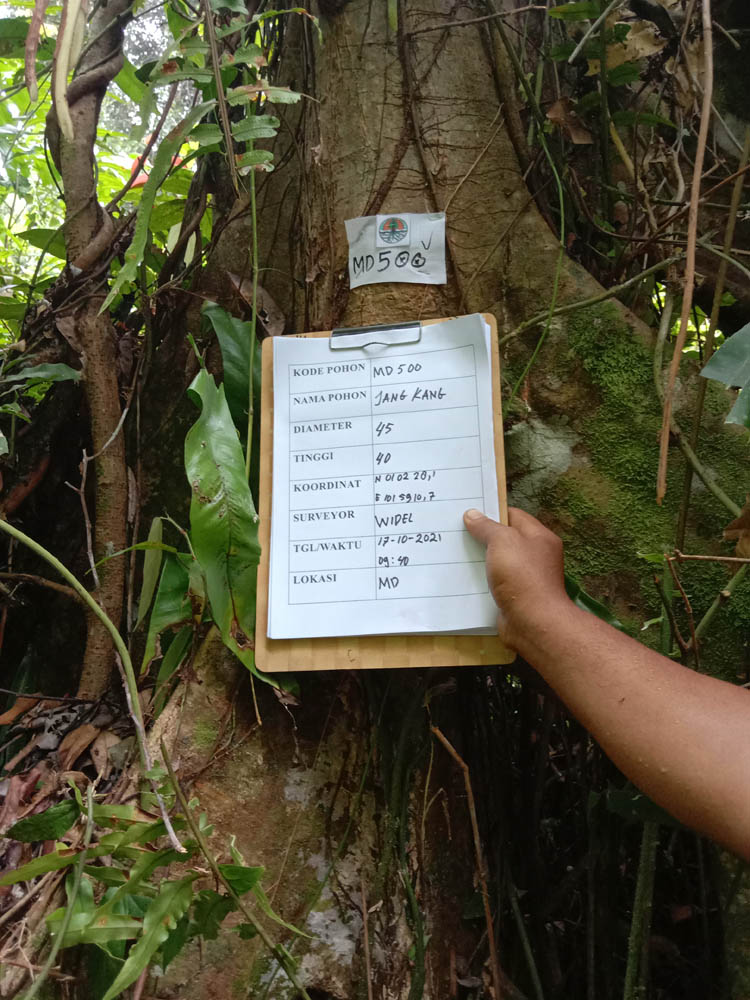 MD500
KODE POHON MD 500
NAMA POHON JANG KANG
DIAMETER 45
TINGGI 40
KOORDINAT N 01 02 28,1
E 101 59 10,7
SURVEYOR WIDEL
TGL/WAKTU 17-10-2021
09:40
LOKASI MD